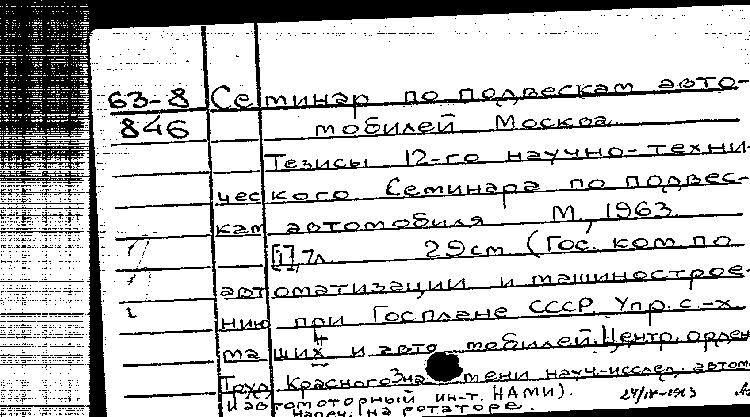 63-8 Семинар по подвескам авто-
846 мобилей Москва
Тезисы 12-го научно-техни-
ческого Семинара по подвес-
кам автомобиля М., 1963.
29 см (Гос. ком. по
автоматизации и машинострое-
нию при Госплане СССР Упр. с.-х
машин и авто мобилей. Центр. орден
Труд. Красного Знамени науч-исслед. автом
и автомоторный ин-т. НАМИ).
напеч. на ротаторе.